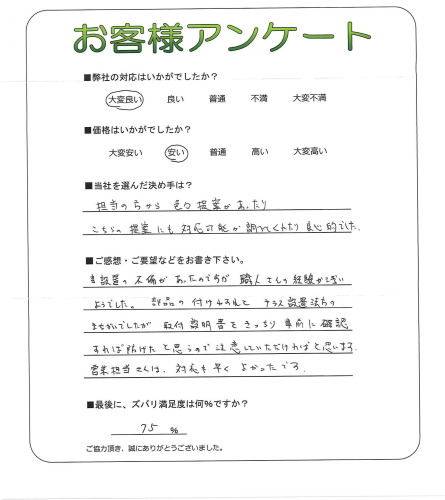 お客様アンケート
■弊社の対応はいかがでしたか?
大変良い 良い 普通 不満 大変不満
■価格はいかがでしたか?
大変安い 安い 普通 高い 大変高い
■当社を選んだ決め手は?
担当の方から 色々提案があったり
こちらの提案にも対応可能か調べてくれたり良心的でした.
■ご感想・ご要望などをお書き下さい。
設置の不備があったのですが 職人さんの経験が浅い
ようでした。 部品の付け忘れと テラス設置法方の
まちがいでしたが 取付説明書をきっちり 事前に確認
すれば防げたと思うので注意していただければと思います.
営業担当さんは、対応も早く よかったです.
■最後に、ズバリ満足度は何%ですか?
75 %
ご協力頂き、誠にありがとうございました。